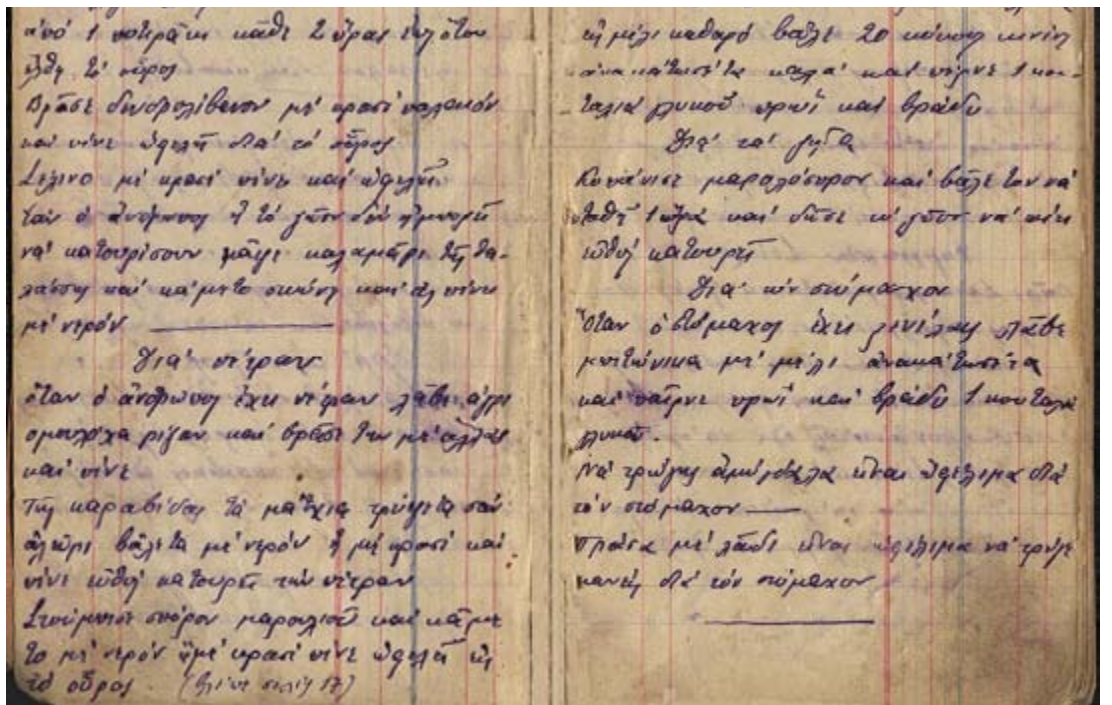 ἀπό 1 ποτηράκι κάθε 2 ὥρας ἕως ὅτου
ἔλθη τό οὖρος
Βράσε δενδρολίβανον μέ κρασί παλαιόν
καί πίνε ὠφελεῖ διά τό οὖρος
Σέλινο μέ κρασί πίνε καί ὠφελεῖ
ὅταν ὁ ἄνθρωπος ἤ τό ζῶον δέν ἠμπορεῖ
νά κατουρίσουν καλαμάρι τῆς θα-
λάσσης καί κάμετο σκόνη καί ἄς πίνει
μέ νερόν
Διά πέτραν
ὅταν ὁ ἄνθρωπος ἔχει πέτραν λάβε ἀγρι
ρίζαν καί βράσε την μέ
καί πίνε
Τῆς καραβίδας τά μάτχια τρίψετα σάν
ἀλεύρι βάλετα μέ νερόν ἤ μέ κρασί καί
πίνε εὐθύς κατουρεῖ τήν πέτραν
Στούμπισε σπόρον μαρουλιοῦ καί κάμε
το μέ νερόν ἤ μέ κρασί πίνε ὠφελεῖ εἰς
τό οὖρος (βλέπε σελίς 17)
μέλι καθαρό βάλε 20 κόκκους
ἀνακάτωσέ τα καλά καί πέρνε 1 κου-
ταλιά γλυκοῦ πρωΐ καί βράδυ
Διά τά ζῶα
Κοπάνισε μαραθόσπορον καί βάλε τον νά
σταθῆ 1 ὥρα καί δῶσε τό ζῶον νά πίει
εὐθύς κατουρεῖ
Διά τόν στόμαχον
Ὅταν ὁ στόμαχος ἔχει λάβε
μέ μέλι ἀνακάτωσέ τα
καί παῖρνε πρωΐ καί βράδυ 1 κουταλιά
γλυκοῦ.
Νά τρώγης ἀμύγδαλα εἶναι ὠφέλιμα διά
τόν στόμαχον
Πράσα μέ λάδι εἶναι ὠφέλιμα νά τρώγει
κανείς διά τόν στόμαχον